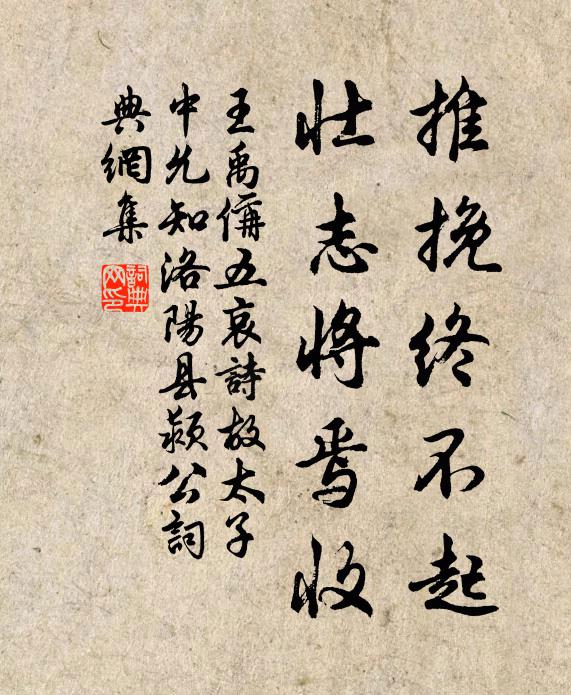 推挽终不起
壮志将焉收
王禹偁五哀詩故太子
中允知洛陽县颍公詞
典網集
詞典網印